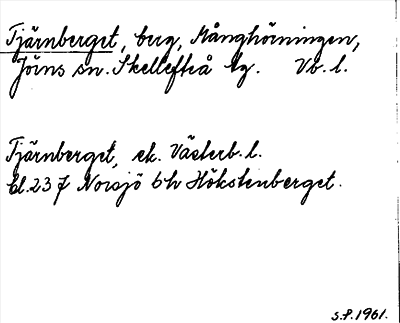 Tjärnberget, berg, Månghörningen,
Jörns sn. Skellefteå tg. Vb. l.
Tjärnberget, ek. Västerb. l.
bl. 23 J Norsjö 6h Hökstenberget.
S.P. 1961.